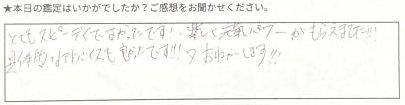 ★本日の鑑定はいかがでしたか？ご感想をお聞かせください。
とてもスピーディでよかったです！楽しく元気パワーがもらえました!!!
具体的なアドバイスもよかったです!!! 又おねがいします!!